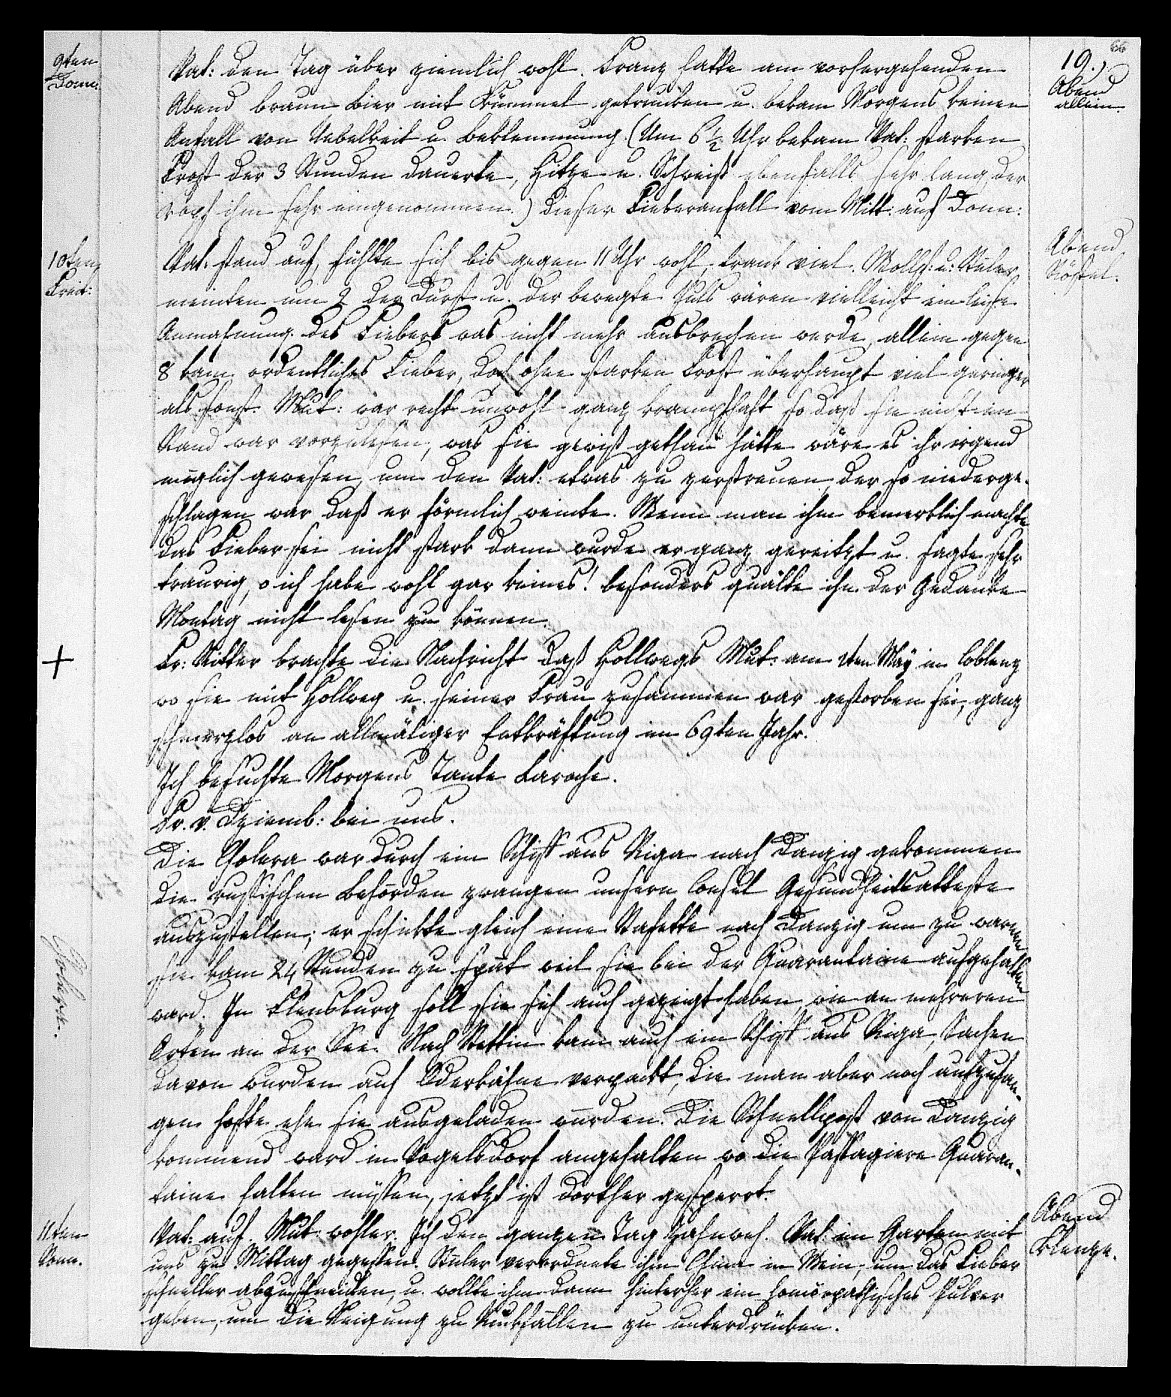 66
19.,
9ten
Donn:
Vat: den Tag über ziemlich wohl. Franz hatte am vorhergehenden
Abend
allein.
Abend braun Bier mit Kümmel getrunken u. bekam Morgens keinen
Anfall von Uebelkeit u. Beklemmung (Um 6 1/2 Uhr bekam Vat: starken
Frost der 3 Stunden dauerte, Hitze u. Schweiß ebenfalls sehr lang, der
Kopf ihm sehr eingenommen.) Dieser Fieberanfall vom Mitt: auf Donn:
10ten
Freit:
Vat: stand auf, fühlte sich bis gegen 11 Uhr wohl, trank viel. Wolff: u: Stüler
Abend
meinten um 2 der Durst u. der beregte Puls wären vielleicht eine leise
Anmahnung des Fiebers was nicht mehr ausbrechen werde, allein gegen
8 kam ordentliches Fieber, doch ohne starken Frost überhaupt viel geringer
als sonst. Mut: war recht unwohl ganz krampfhaft so daß sie nicht im
Stand war vorzulesen, was sie gewiß gethan hätte wäre es ihr irgend
möglich gewesen, um den Vat: etwas zu zerstreuen, der so niederge-
schlagen war daß er förmlich weinte. Wenn man ihm bemerklich machte
das Fieber sei nicht stark dann wurde er ganz gereitzt u. sagte sehr
traurig, o ich habe wohl gar keines! besonders quälte ihn der Gedanke
Montag nicht lesen zu können.
+
Fr: Ritter brachte die Nachricht daß Hollwegs Mut: am 2ten May in Coblenz
wo sie mit Hollweg u. seiner Frau zusammen war gestorben sei, ganz
schmerzlos an allmäliger Entkräftung im 69ten Jahr.
Ich besuchte Morgens Tante Laroche.
Fr. v. Dziemb: bei uns.
Cholera.
Die Cholera war durch ein Schiff aus Riga nach Danzig gekommen
die russischen Behörden zwangen unsern Consul Gesundheitsatteste
auszustellen; er schickte gleich eine Stafette nach Danzig um zu warnen
sie kam 24 Stunden zu spät weil sie bei der Quarantaine aufgehalten
ward. In Elensburg soll sie sich auch gezeigt haben, wie an mehreren
Orten an der See. Nach Stettin kam auch ein Schiff aus Riga, Sachen
davon wurden auf Oderkähne verpackt, die man aber noch aufzufan-
gen hoffte ehe sie ausgeladen würden. Die Schnellpost von Danzig
kommend ward in Vogelsdorf angehalten wo die Passagiere Quaran-
taine halten müssen, jetzt ist dorther gesperrt.
11ten
Sonn.
Vat: auf. Mut: wohler. Ich den ganzen Tag Zahnweh. Vat: im Garten mit
Abend
Klenze.
uns zu Mittag gegessen. Stüler verordnete ihm China in Wein, um das Fieber
schneller abzuschneiden, u. wollte ihm dann hinterher ein homöopathisches Pulver
geben, um die Neigung zu Rückfällen zu unterdrücken.